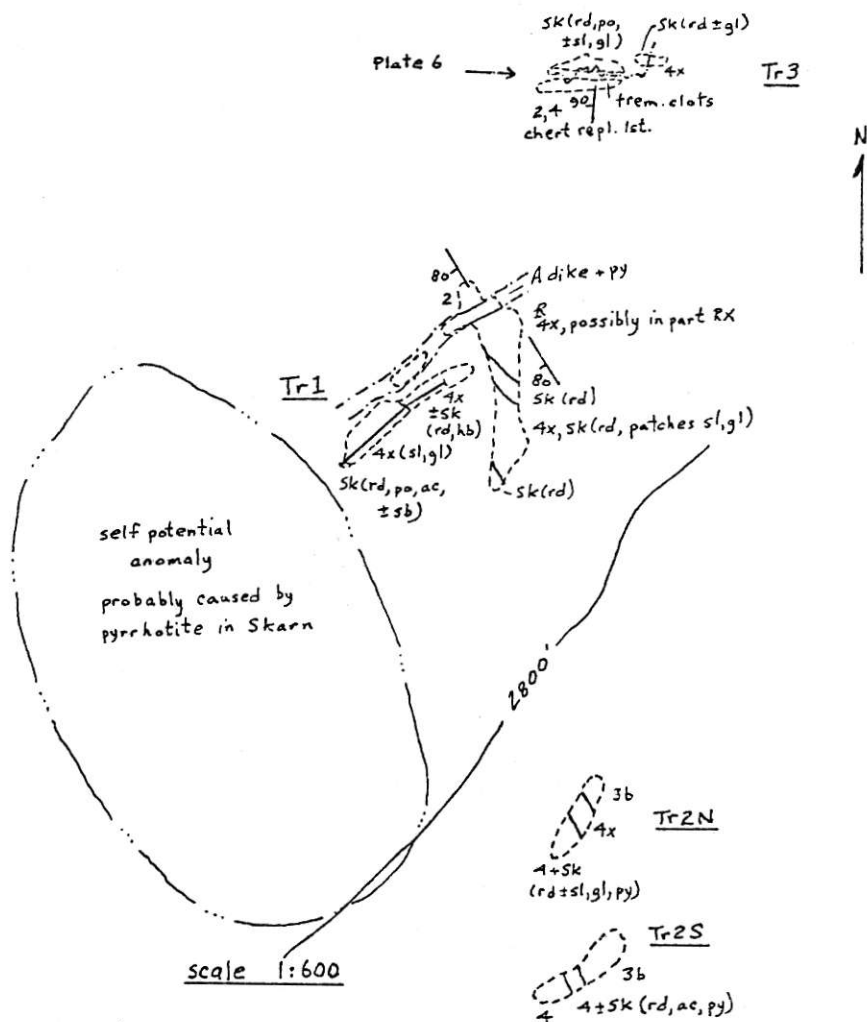 Plate 6
Sk(rd,po,
±sl,gl)
Sk(rd±gl)
4x
Tr3
2,4
90
trem. clots
chert repl. lst.
N
80
2
A dike + py
R
4x, possibly in part RX
Tr1
80
4x
±Sk
(rd,hb)
Sk(rd)
4x(sl,gl)
4x, Sk(rd, patches sl,gl)
Sk(rd,po,ac,
±sb)
Sk(rd)
self potential
anomaly
probably caused by
pyrrhotite in Skarn
2800'
3b
4x
Tr2N
4+Sk
(rd±sl,gl,py)
Tr2S
3b
4±Sk(rd,ac,py)
4
scale 1:600